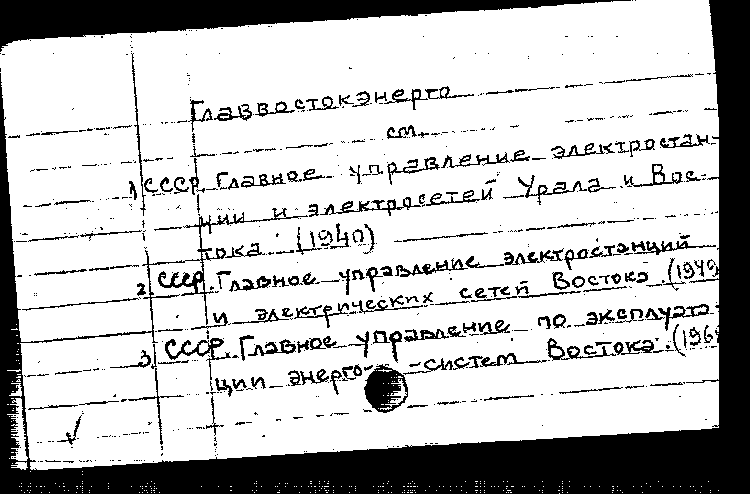 Главвостокэнерго
см.
1) СССР. Главное управление электростан-
ции и электросетей Урала и Вос-
тока. (1940)
2. СССР. Главное управление электростанций
и электрических сетей Востока. (1949
3, СССР. Главное управление по эксплуата-
ции энерго- -систем Востока. (196